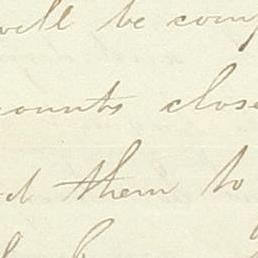 will be comp
counts close
d them to